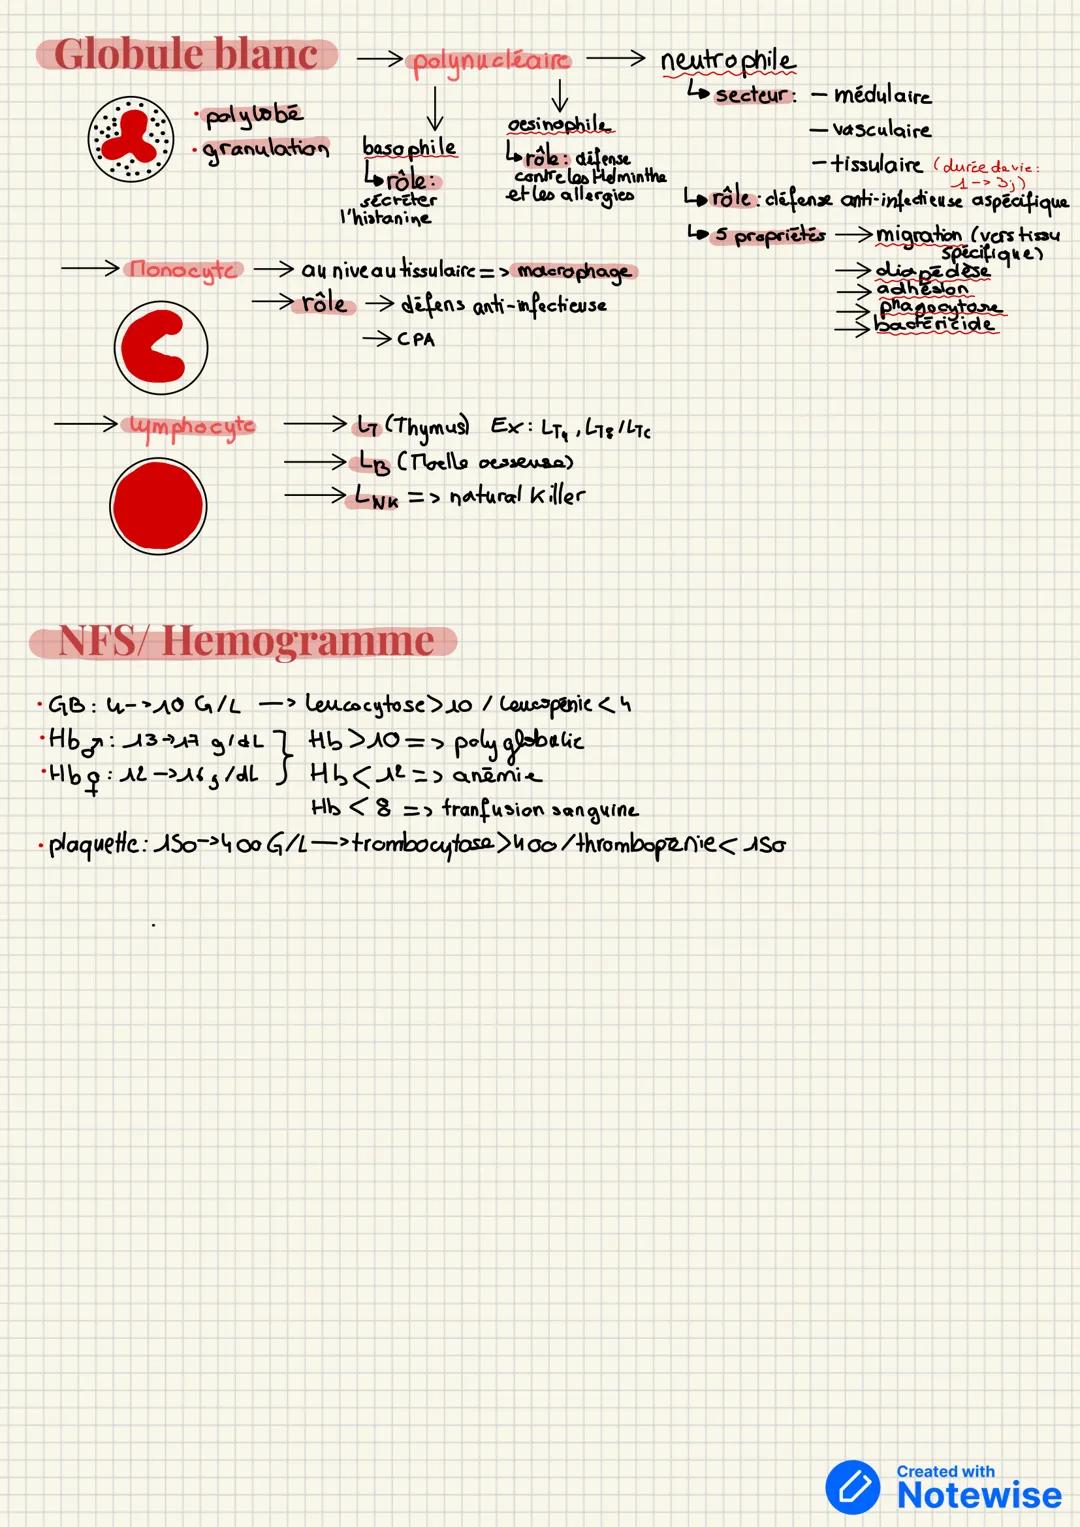 Globule blanc → polynucléaire → neutrophile
↳ secteur : – médulaire
– vasculaire
– tissulaire (durée de vie : 1 -> 3j)
↳ rôle : défense anti-infectieuse aspécifique
↳ 5 propriétés → migration (vers tissu spécifique)
→ diapédèse
→ adhésion
→ phagocytose
→ bactéricide
· polylobé
· granulation
basophile
↳ rôle :
sécréter
l'histanine
oesinophile
↳ rôle : défense
contre les Helminthe
et les allergies
→ Monocyte → au niveau tissulaire => macrophage
→ rôle → défens anti-infectieuse
→ CPA
→ lymphocyte → LT (Thymus) Ex : LT4, LT8/LTc
→ LB (Moelle oesseuse)
→ LNK => natural Killer
NFS/ Hemogramme
· GB : 4 -> 10 G/L -> leucocytose > 10 / leucopénie < 4
· Hb ♂ : 13 -> 17 g/dL } Hb > 10 => polyglobulie
· Hb ♀ : 12 -> 16 g/dL } Hb < 12 => anémie
Hb < 8 => tranfusion sanguine
· plaquette : 150 -> 400 G/L -> trombocytose > 400 / thrombopénie < 150
Created with
Notewise